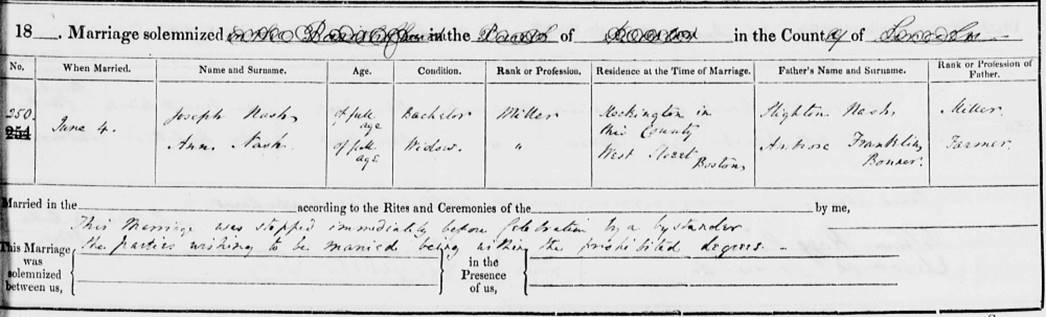 18 . Marriage solemnized in the Parish Church in the Parish of Boston in the County of Lincoln
No. When Married. Name and Surname. Age. Condition. Rank or Profession. Residence at the Time of Marriage. Father's Name and Surname. Rank or Profession of Father.
250 June 4. Joseph Nash of full age Bachelor Miller in this County Nash Miller.
254 Ann Nash of full age Widow. " West Street Boston Ambrose Franklin Bonner. Farmer.
Married in the according to the Rites and Ceremonies of the by me,
This Marriage was stopped immediately before Celebration by a bystander
the parties wishing to be married being within the prohibited degrees.
This Marriage was solemnized between us, in the Presence of us,